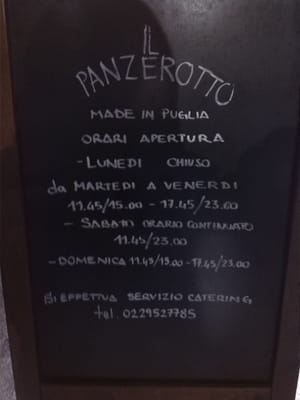 IL
PANZEROTTO
MADE IN PUGLIA
ORARI APERTURA
- LUNEDI CHIUSO
da MARTEDI A VENERDI
11.45/15.00 - 17.45/23.00
- SABATO ORARIO CONTINUATO
11.45/23.00
- DOMENICA 11.45/15.00 - 17.45/23.00
SI EFFETTUA SERVIZIO CATERING
tel. 0229527785